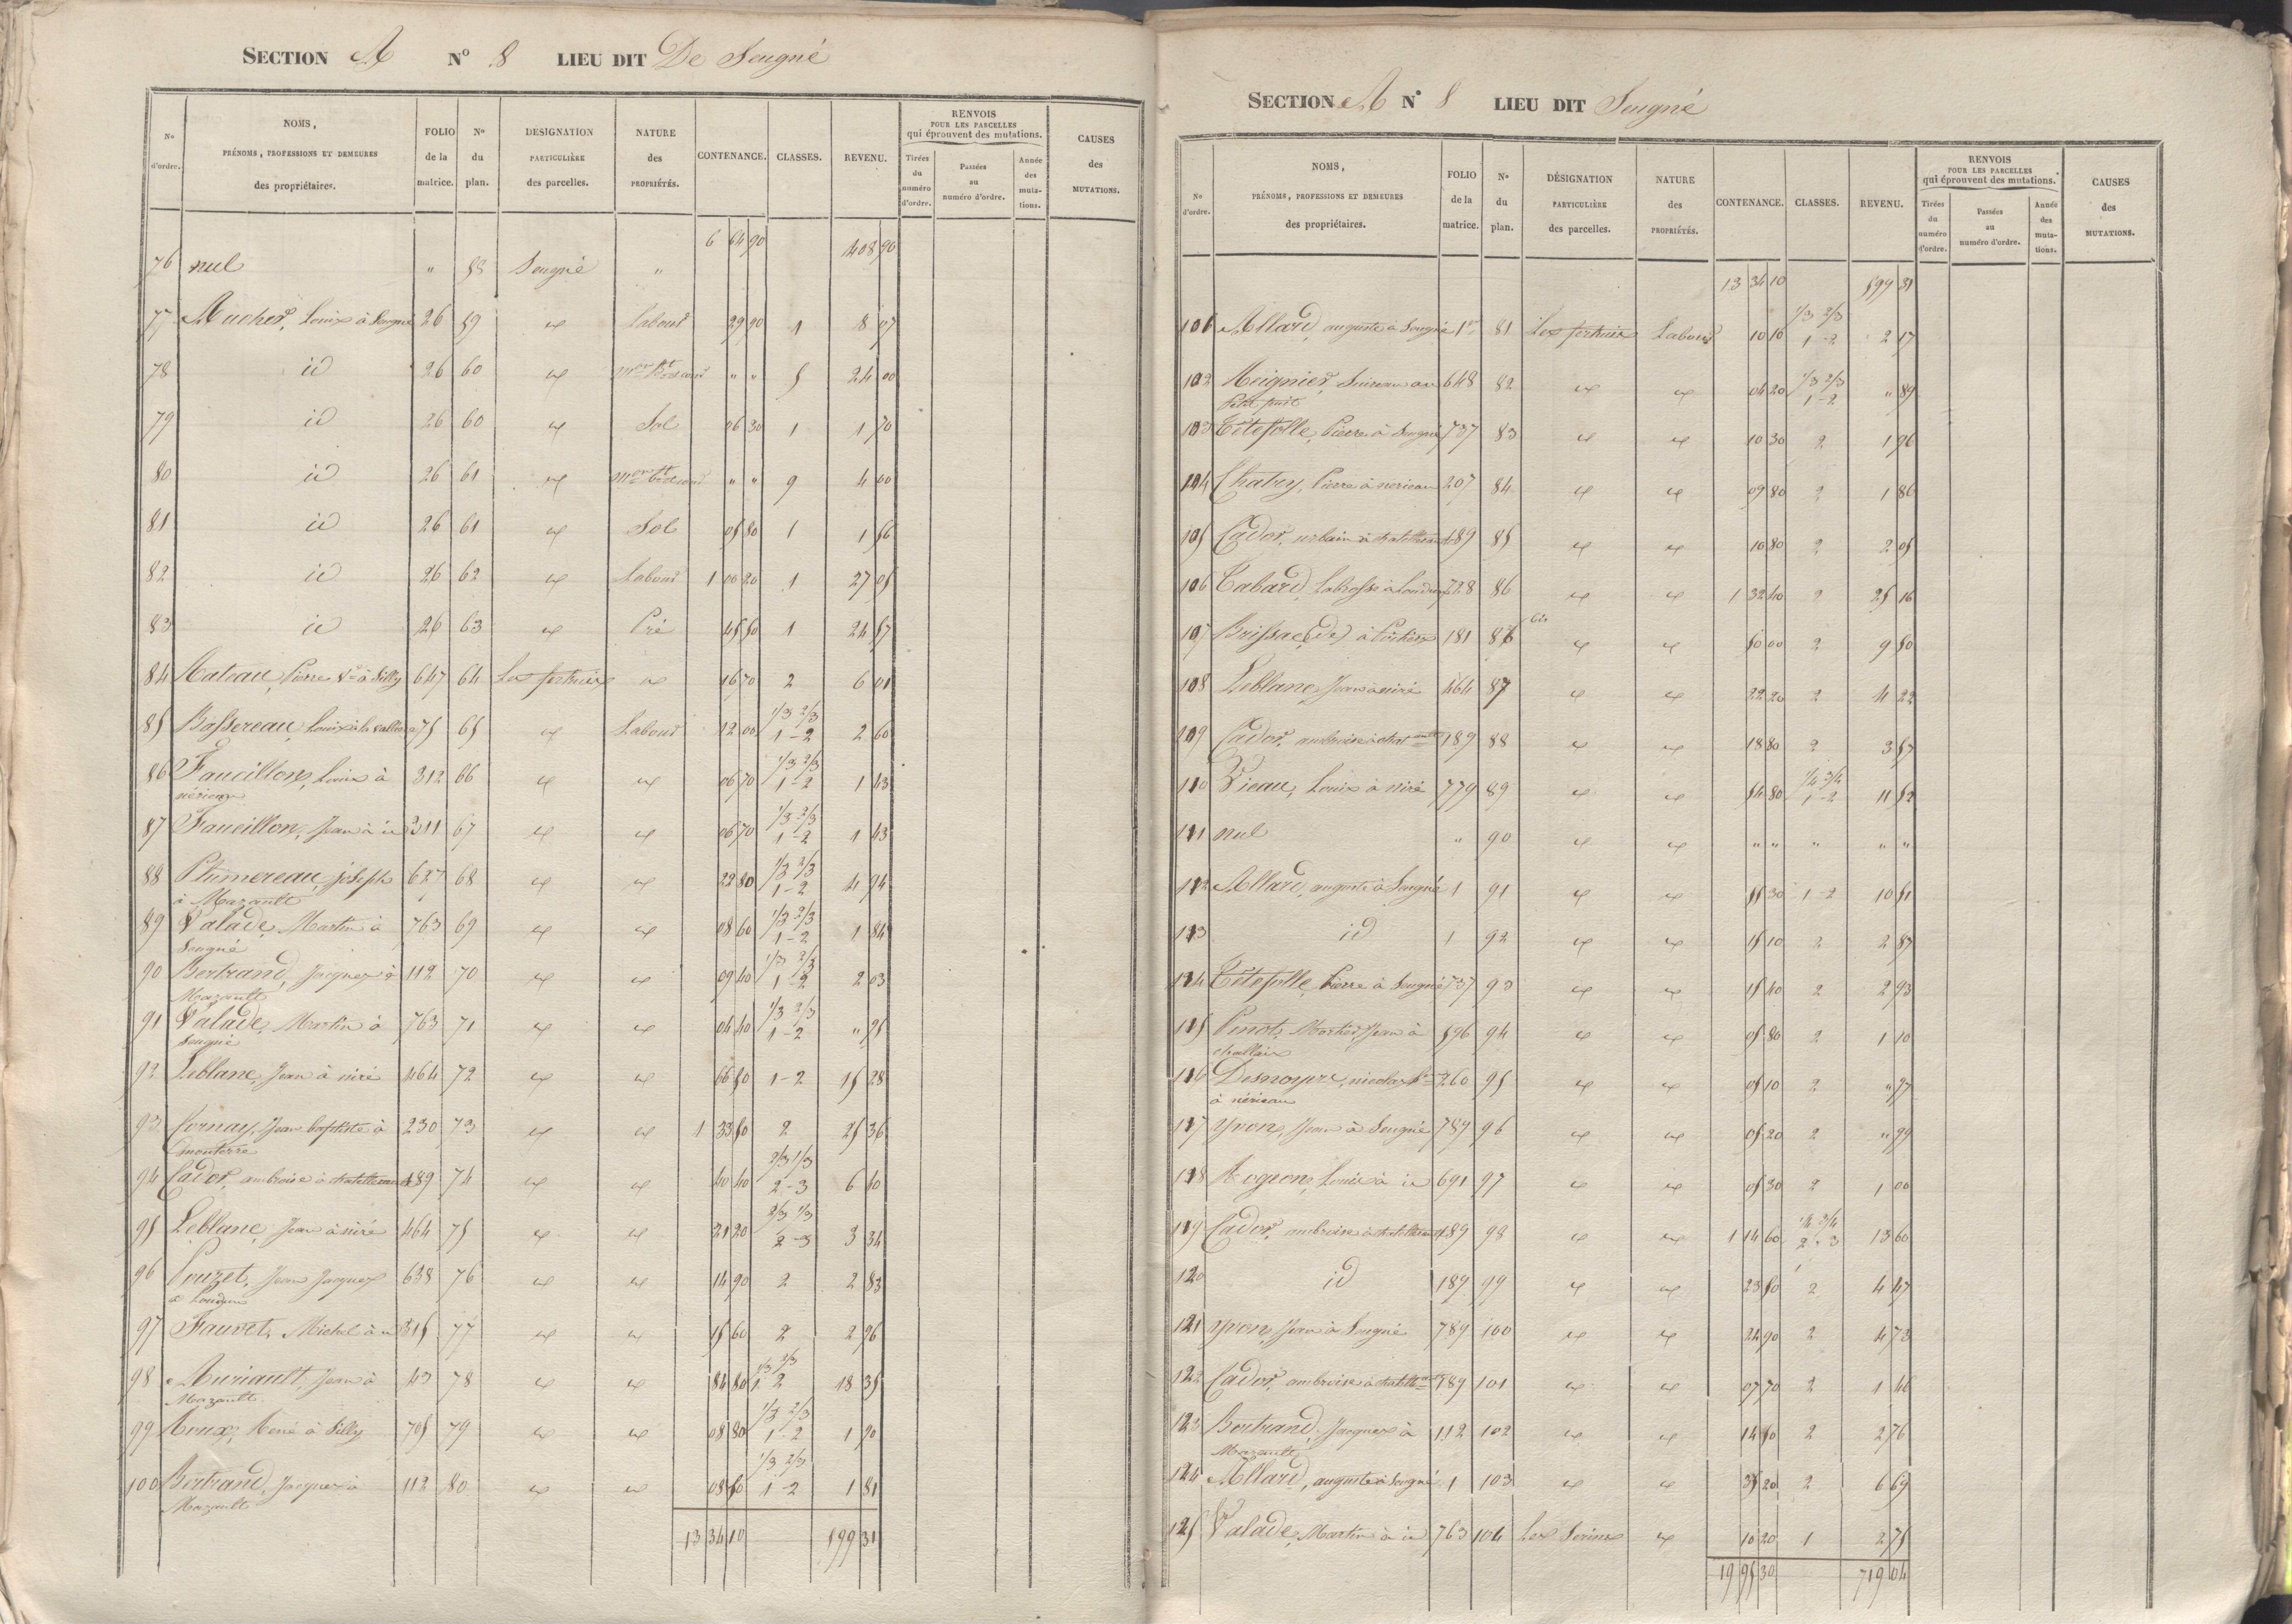 SECTION A N° 8 LIEU DIT De Seugné
N° d'ordre. NOMS, PRÉNOMS, PROFESSIONS ET DEMEURES des propriétaires. FOLIO de la matrice. N° du plan. DESIGNATION PARTICULIÈRE des parcelles. NATURE des PROPRIÉTÉS. CONTENANCE. CLASSES. REVENU. RENVOIS POUR LES PARCELLES qui éprouvent des mutations. Tirées du numéro d'ordre. Passées au numéro d'ordre. Année des mutations. CAUSES des MUTATIONS.
6 64 90 408 90
76 nul " 58 Seugné "
77 Louis à Seugné 26 59 id Labour 29 90 1 8 07
78 id 26 60 id " " 5 24 00
79 id 26 60 id Sol 06 30 1 1 70
80 id 26 61 id " " 9 4 00
81 id 26 61 id Sol 05 80 1 1 56
82 id 26 62 id Labour 1 00 20 1 27 05
83 id 26 63 id Pré 45 50 1 24 57
84 Rateau, Pierre Ve à Silly 647 64 Les id 16 70 2 6 01
85 Bassereau, Louis à la vallée 75 65 id Labour 12 00 1/3 2/3 1-2 2 60
86 Faucillon, Louis à 312 66 id id 06 70 1/3 2/3 1-2 1 43
nérieau
87 Faucillon, Jean à id 311 67 id id 06 70 1/3 2/3 1-2 1 43
88 Plumereau, joseph 627 68 id id 22 80 1/3 2/3 1-2 4 94
à Mazault
89 Valade, Martin à 763 69 id id 08 60 1/3 2/3 1-2 1 84
Seugné
90 Bertrand, Jacques à 112 70 id id 09 40 1/3 2/3 1-2 2 03
Mazault
91 Valade, Martin à 763 71 id id 04 40 1/3 2/3 1-2 " 95
Seugné
92 Leblanc, Jean à niré 464 72 id id 66 50 1-2 15 28
93 Cornay, Jean baptiste à 230 73 id id 1 33 50 2 25 36
monterre
94 Cador, ambroise à chatellerault 189 74 id id 40 40 2/3 1/3 2-3 6 40
95 Leblanc, Jean à niré 464 75 id id 21 20 2/3 1/3 2-3 3 34
96 Pouzet, Jean Jacques 638 76 id id 14 90 2 2 83
à Loudun
97 Fauvet, Michel à id 315 77 id id 15 60 2 2 96
98 Auriault, Jean à 43 78 id id 84 80 1/3 2/3 1 2 18 35
Mazault
99 Roux, René à Silly 705 79 id id 08 80 1/3 2/3 1-2 1 90
100 Bertrand, Jacques à 112 80 id id 08 40 1/3 2/3 1-2 1 81
Mazault
13 34 10 599 31
SECTION A N° 8 LIEU DIT Seugné
N° d'ordre. NOMS, PRÉNOMS, PROFESSIONS ET DEMEURES des propriétaires. FOLIO de la matrice. N° du plan. DÉSIGNATION PARTICULIÈRE des parcelles. NATURE des PROPRIÉTÉS. CONTENANCE. CLASSES. REVENU. RENVOIS POUR LES PARCELLES qui éprouvent des mutations. Tirées du numéro d'ordre. Passées au numéro d'ordre. Année des mutations. CAUSES des MUTATIONS.
13 34 10 599 31
101 Allard, auguste à Seugné 1er 81 Les Labour 10 10 1/3 2/3 1-2 2 17
102 au 648 82 id id 04 20 1/3 2/3 1-2 " 89
Petit
103 Têtefolle, Pierre à Seugné 737 83 id id 10 30 2 1 96
104 Chatry, Pierre à nerieau 207 84 id id 09 80 2 1 86
105 Cador, urbain à chatellerault 189 85 id id 10 80 2 2 05
106 Tabard, Labrosse à Loudun 728 86 id id 1 32 40 2 25 16
107 Brissac (de) à Poitiers 181 86 bis id id 50 00 2 9 50
108 Leblanc, Jean à niré 464 87 id id 22 20 2 4 22
109 Cador, ambroise à 189 88 id id 18 80 2 3 57
110 Vieau, Louis à niré 779 89 id id 54 80 1/4 3/4 1-2 11 52
111 nul " 90 id id " " " " "
112 Allard, auguste à Seugné 1 91 id id 55 30 1-2 10 51
113 id 1 92 id id 15 10 2 2 87
114 Têtefolle, Pierre à Seugné 737 93 id id 15 40 2 2 93
115 Pinot, Jean à 596 94 id id 05 80 2 1 10
116 Desnoyers, nicolas 260 95 id id 05 10 2 " 97
à nérieau
117 yvon, Jean à Seugné 789 96 id id 05 20 2 " 99
118 Rognon, Louis à id 691 97 id id 05 30 2 1 00
119 Cador, ambroise à chatellerault 189 98 id id 1 14 60 1/4 3/4 2-3 13 60
120 id 189 99 id id 23 50 2 4 47
121 yvon, Jean à Seugné 789 100 id id 24 90 2 4 73
122 Cador, ambroise à 189 101 id id 07 70 2 1 46
123 Bertrand, Jacques à 112 102 id id 14 50 2 2 76
Mazault
124 Allard, auguste à Seugné 1 103 id id 35 20 2 6 69
125 Valade, Martin à id 763 104 Les id 10 20 1 2 75
19 95 30 719 04